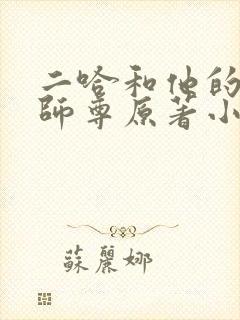 二哈和他的
師尊原著小
蘇麗娜